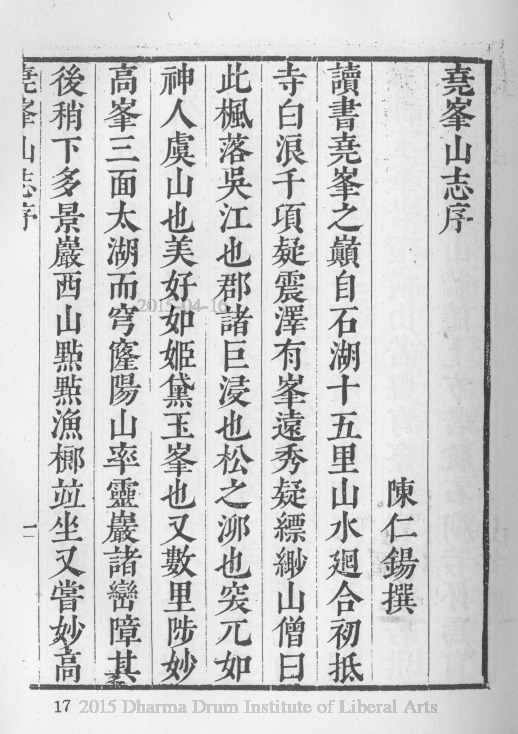 堯峯山志序
陳仁錫撰
讀書堯峯之巔自石湖十五里山水廻合初抵
寺白浪千項疑震澤有峯遠秀疑縹緲山僧曰
此楓落吳江也郡諸巨浸也松之泖也突兀如
神人虞山也美好如姬黛玉峯也又數里陟妙
高峯三面太湖而穹窿陽山率靈巖諸巒障其
後稍下多景巖西山點點漁榔竝坐又嘗妙高
堯峯山志序
一
2015-04-16
17 2015 Dharma Drum Institute of Liberal Arts